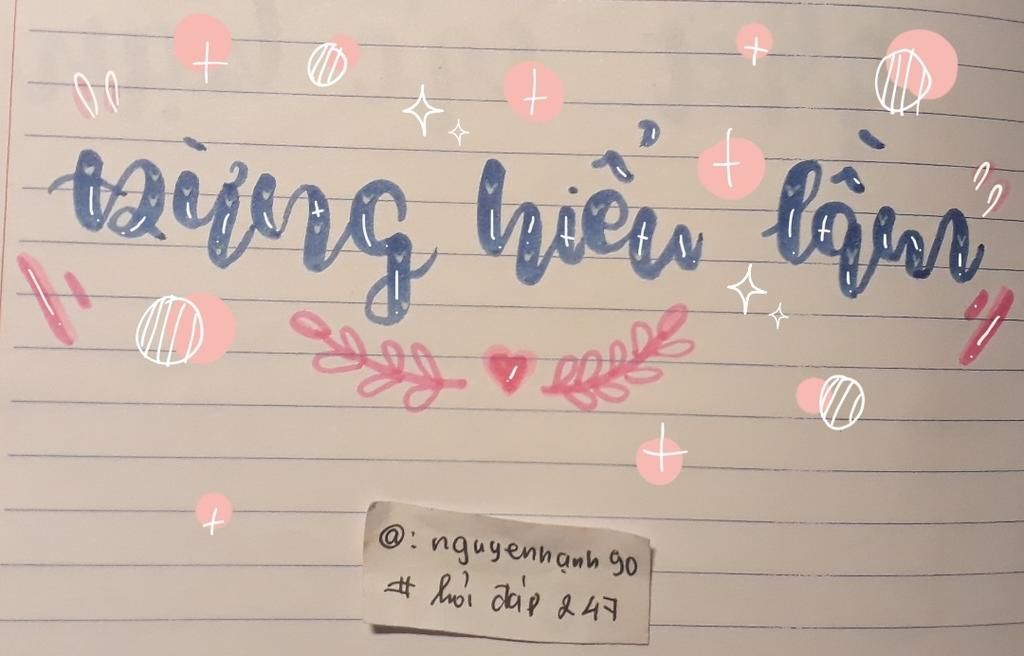 Đừng hiểu lầm
@: nguyenhạnh90
# hỏi đáp 247